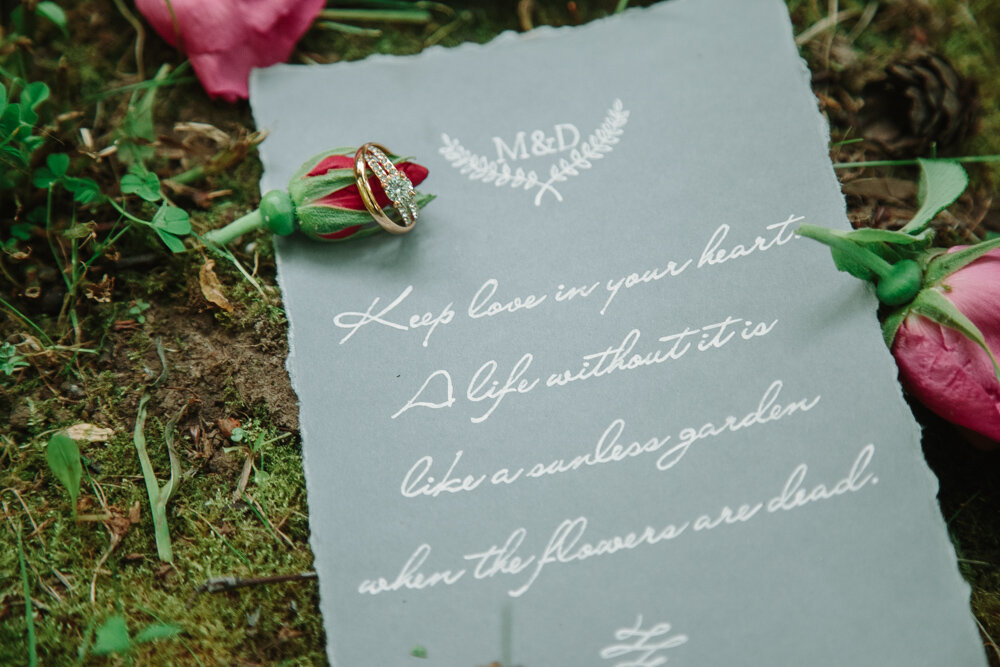 M&D
Keep love in your heart.
A life without it is
like a sunless garden
when the flowers are dead.